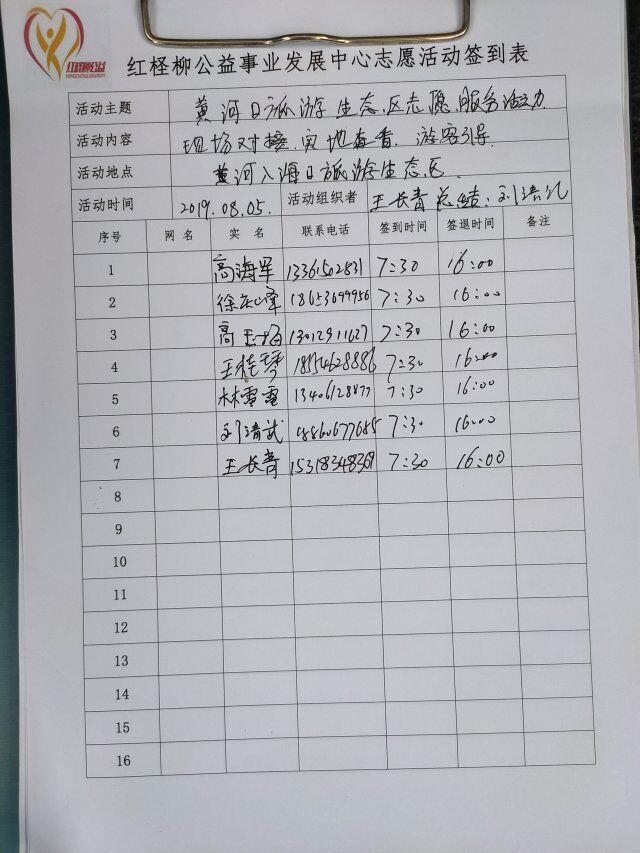 红柽柳公益
HONGCHENGLIUGONGYI
红柽柳公益事业发展中心志愿活动签到表
活动主题 黄河口旅游生态区志愿服务活动
活动内容 现场对接.实地查看.游客引导.
活动地点 黄河入海口旅游生态区.
活动时间 2019.08.05. 活动组织者 王长青总结:刘清
序号 网名 实名 联系电话 签到时间 签退时间 备注
1 高海军 13361502831 7:30 16:00
2 徐 峰 18653699956 7:30 16:00
3 高玉梅 13012911627 7:30 16:00
4 王桂琴 18154628886 7:30 16:00
5 林雪雪 13406128877 7:30 16:00
6 刘清武 18860677685 7:30 16:00
7 王长青 15318348369 7:30 16:00
8
9
10
11
12
13
14
15
16